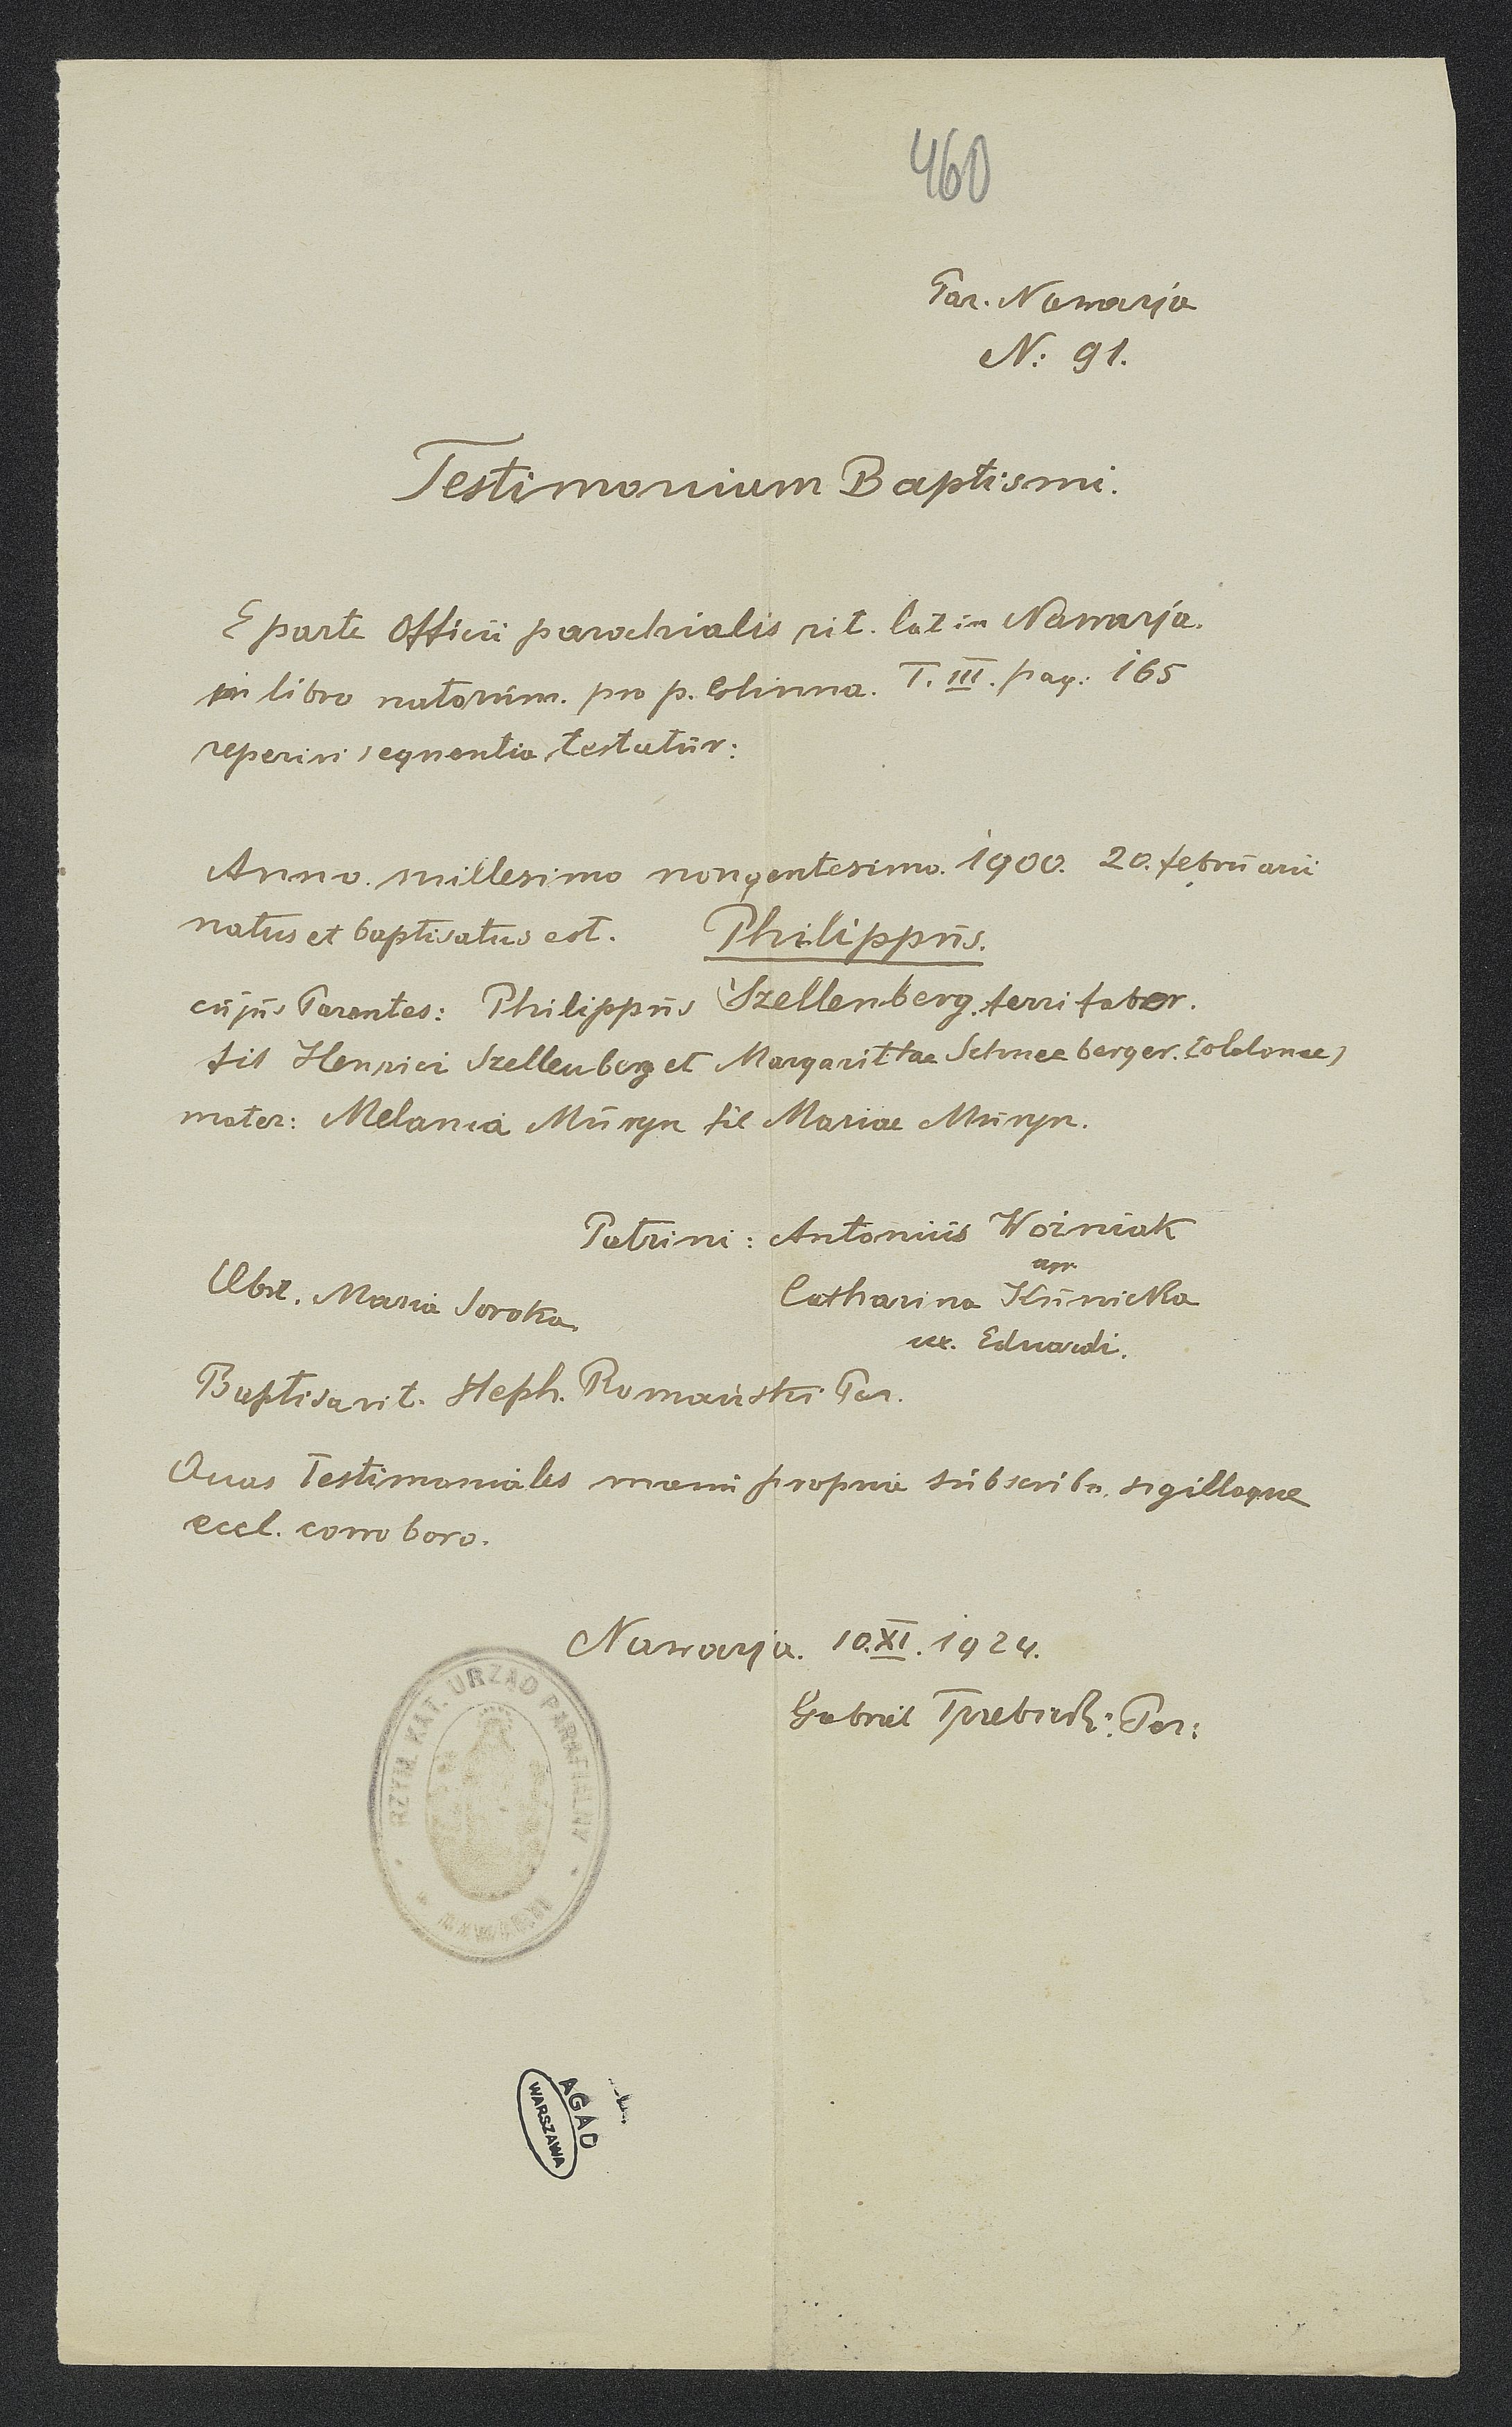 460
Par. Nawarja
N: 91.
Testimonium Baptismi.
E parte Officii parochialis rit. lat in Nawarja.
in libro natorum. pro p. Glinna. T. III. pag: 165
reperiri sequentia testatur:
Anno. millesimo nongentesimo. 1900. 20. februarii
natus et baptisatus est. Philippus.
cujus Parentes: Philippus Szellenberg. ferri faber.
fil Henrici Szellenberg et Margarittae Schneeberger.
mater: Melania Muryn fil Mariae Muryn.
Patrini: Antonius Woźniak
agr.
Obst. Maria Soroka. Catharina Kunicka
ux. Eduardi.
Baptisavit. Steph. Romański Par.
Quas Testimoniales manu propria subscribo. sigilloque
eccl. corroboro.
Nawarja. 10.XI.1924.
Gabriel Par:
RZYM. KAT. URZĄD PARAFIALNY
AGAD
WARSZAWA